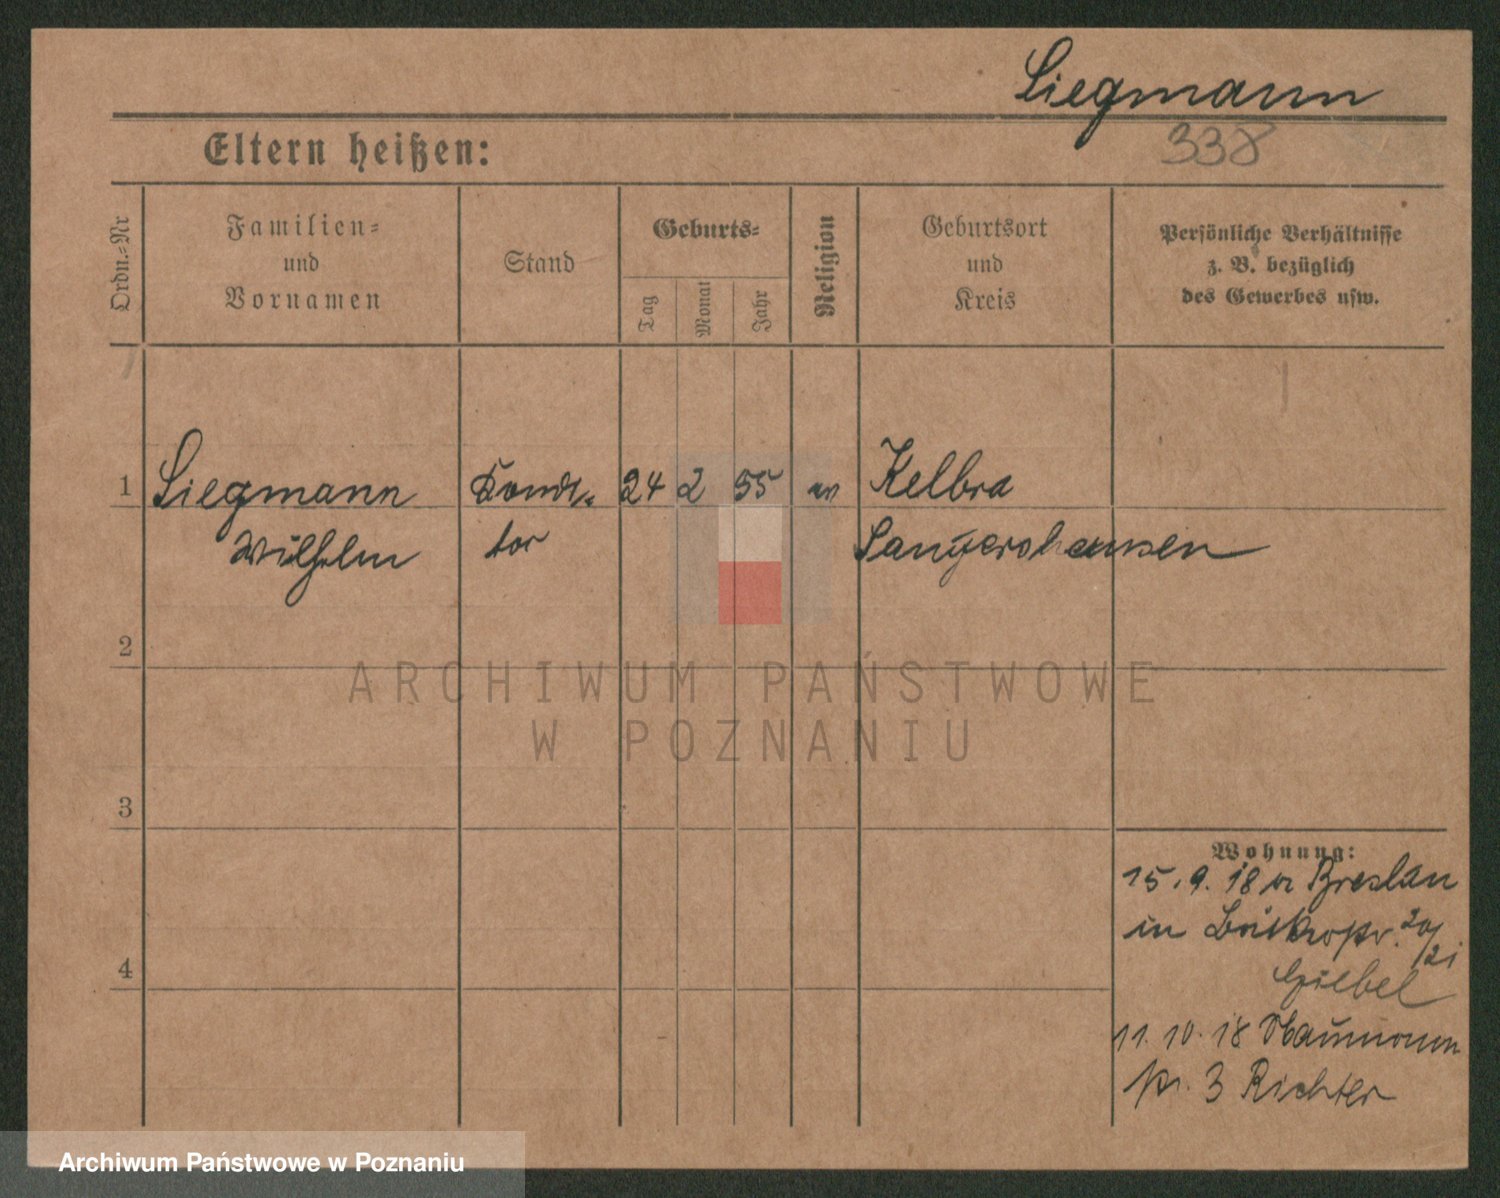 Siegmann
338
Eltern heißen:
Ordn.-Nr
Familien-
und
Vornamen
Stand
Geburts-
Tag
Monat
Jahr
Religion
Geburtsort
und
Kreis
Persönliche Verhältnisse
z. B. bezüglich
des Gewerbes usw.
1 Siegmann Kondi- 24 2 55 ev Kelbra
Wilhelm tor Sangershausen
2
3
4
Wohnung:
15. 9. 18 Breslau
in 20/21
Giebel
11. 10. 18 Naumann
str. 3 Richter
ARCHIWUM PAŃSTWOWE
W POZNANIU
Archiwum Państwowe w Poznaniu